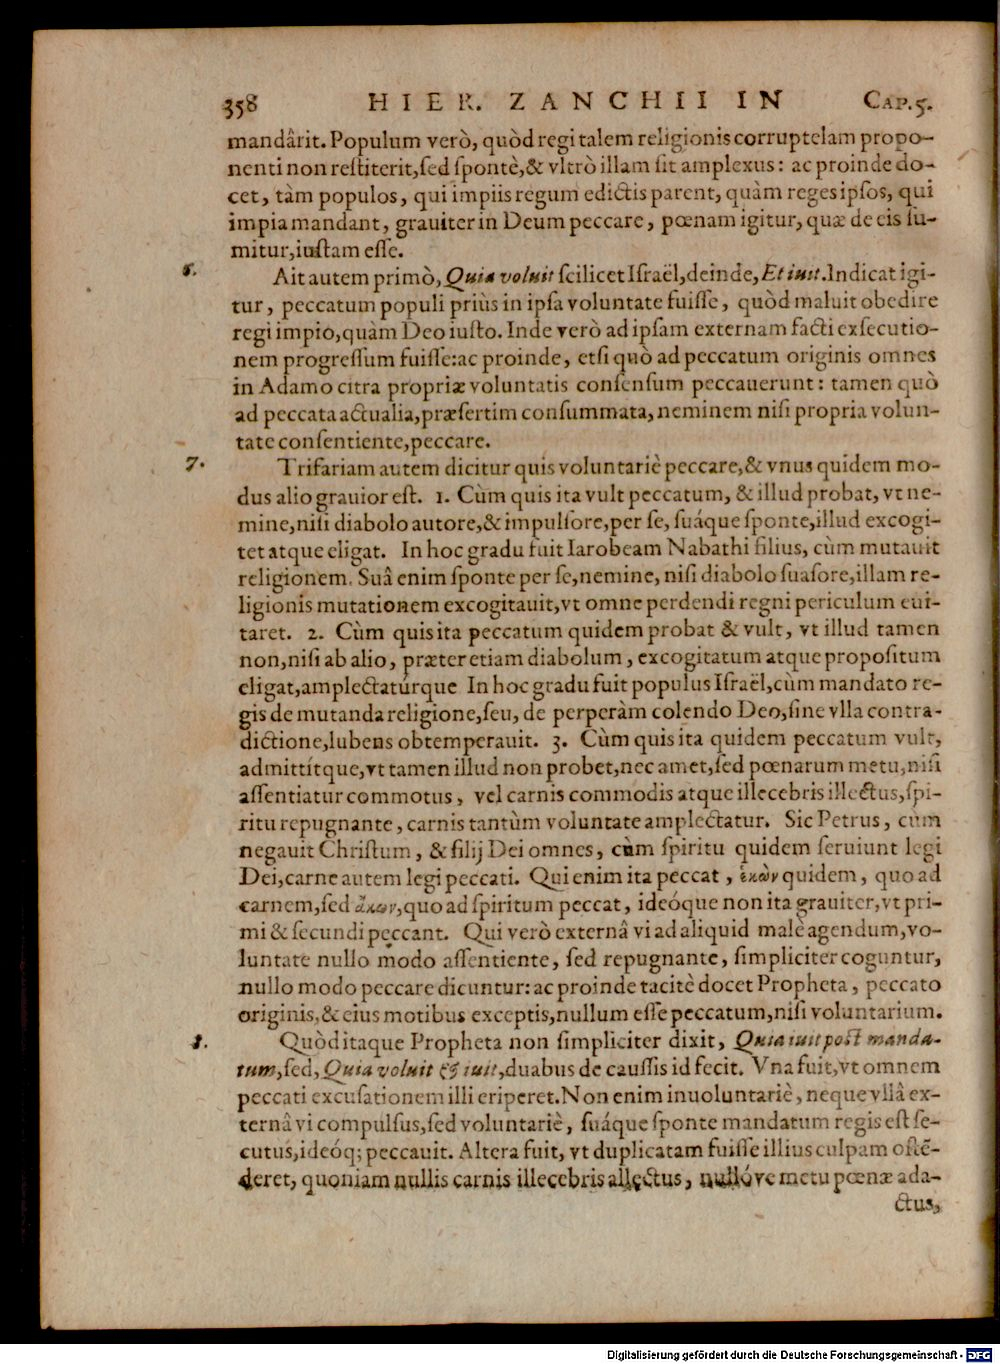 358 HIER. ZANCHII IN CAP. 5.
mandârit. Populum verò, quòd regi talem religionis corruptelam propo-
nenti non reſtiterit, ſed ſpontè, & vltrò illam ſit amplexus: ac proinde do-
cet, tàm populos, qui impiis regum edictis parent, quàm reges ipſos, qui
impia mandant, grauiter in Deum peccare, pœnam igitur, quæ de eis ſu-
mitur, iuſtam eſſe.
6. Ait autem primò, Quia voluit ſcilicet Iſraël, deinde, Et iuit. Indicat igi-
tur, peccatum populi priùs in ipſa voluntate fuiſſe, quòd maluit obedire
regi impio, quàm Deo iuſto. Inde verò ad ipſam externam facti exſecutio-
nem progreſſum fuiſſe: ac proinde, etſi quò ad peccatum originis omnes
in Adamo citra propriæ voluntatis conſenſum peccauerunt: tamen quò
ad peccata actualia, præſertim conſummata, neminem niſi propria volun-
tate conſentiente, peccare.
7. Trifariam autem dicitur quis voluntariè peccare, & vnus quidem mo-
dus alio grauior eſt. 1. Cùm quis ita vult peccatum, & illud probat, vt ne-
mine, niſi diabolo autore, & impulſore, per ſe, ſuáque ſponte, illud excogi-
tet atque eligat. In hoc gradu fuit Iarobeam Nabathi filius, cùm mutauit
religionem. Suâ enim ſponte per ſe, nemine, niſi diabolo ſuaſore, illam re-
ligionis mutationem excogitauit, vt omne perdendi regni periculum eui-
taret. 2. Cùm quis ita peccatum quidem probat & vult, vt illud tamen
non, niſi ab alio, præter etiam diabolum, excogitatum atque propoſitum
eligat, amplectatúrque In hoc gradu fuit populus Iſraël, cùm mandato re-
gis de mutanda religione, ſeu, de perperàm colendo Deo, ſine vlla contra-
dictione, lubens obtemperauit. 3. Cùm quis ita quidem peccatum vult,
admittítque, vt tamen illud non probet, nec amet, ſed pœnarum metu, niſi
aſſentiatur commotus, vel carnis commodis atque illecebris illectus, ſpi-
ritu repugnante, carnis tantùm voluntate amplectatur. Sic Petrus, cùm
negauit Chriſtum, & filij Dei omnes, cùm ſpiritu quidem ſeruiunt legi
Dei, carne autem legi peccati. Qui enim ita peccat, ἑκὼν quidem, quo ad
carnem, ſed ἄκων, quo ad ſpiritum peccat, ideóque non ita grauiter, vt pri-
mi & ſecundi peccant. Qui verò externâ vi ad aliquid malè agendum, vo-
luntate nullo modo aſſentiente, ſed repugnante, ſimpliciter coguntur,
nullo modo peccare dicuntur: ac proinde tacitè docet Propheta, peccato
originis, & eius motibus exceptis, nullum eſſe peccatum, niſi voluntarium.
8. Quòd itaque Propheta non ſimpliciter dixit, Quia iuit poſt manda-
tum, ſed, Quia voluit & iuit, duabus de cauſſis id fecit. Vna fuit, vt omnem
peccati excuſationem illi eriperet. Non enim inuoluntariè, neque vllâ ex-
ternâ vi compulſus, ſed voluntariè, ſuáque ſponte mandatum regis eſt ſe-
cutus, ideóq; peccauit. Altera fuit, vt duplicatam fuiſſe illius culpam oſtẽ-
deret, quoniam nullis carnis illecebris allectus, nullóve metu pœnæ ada-
ctus,
Digitalisierung gefördert durch die Deutsche Forschungsgemeinschaft - DFG